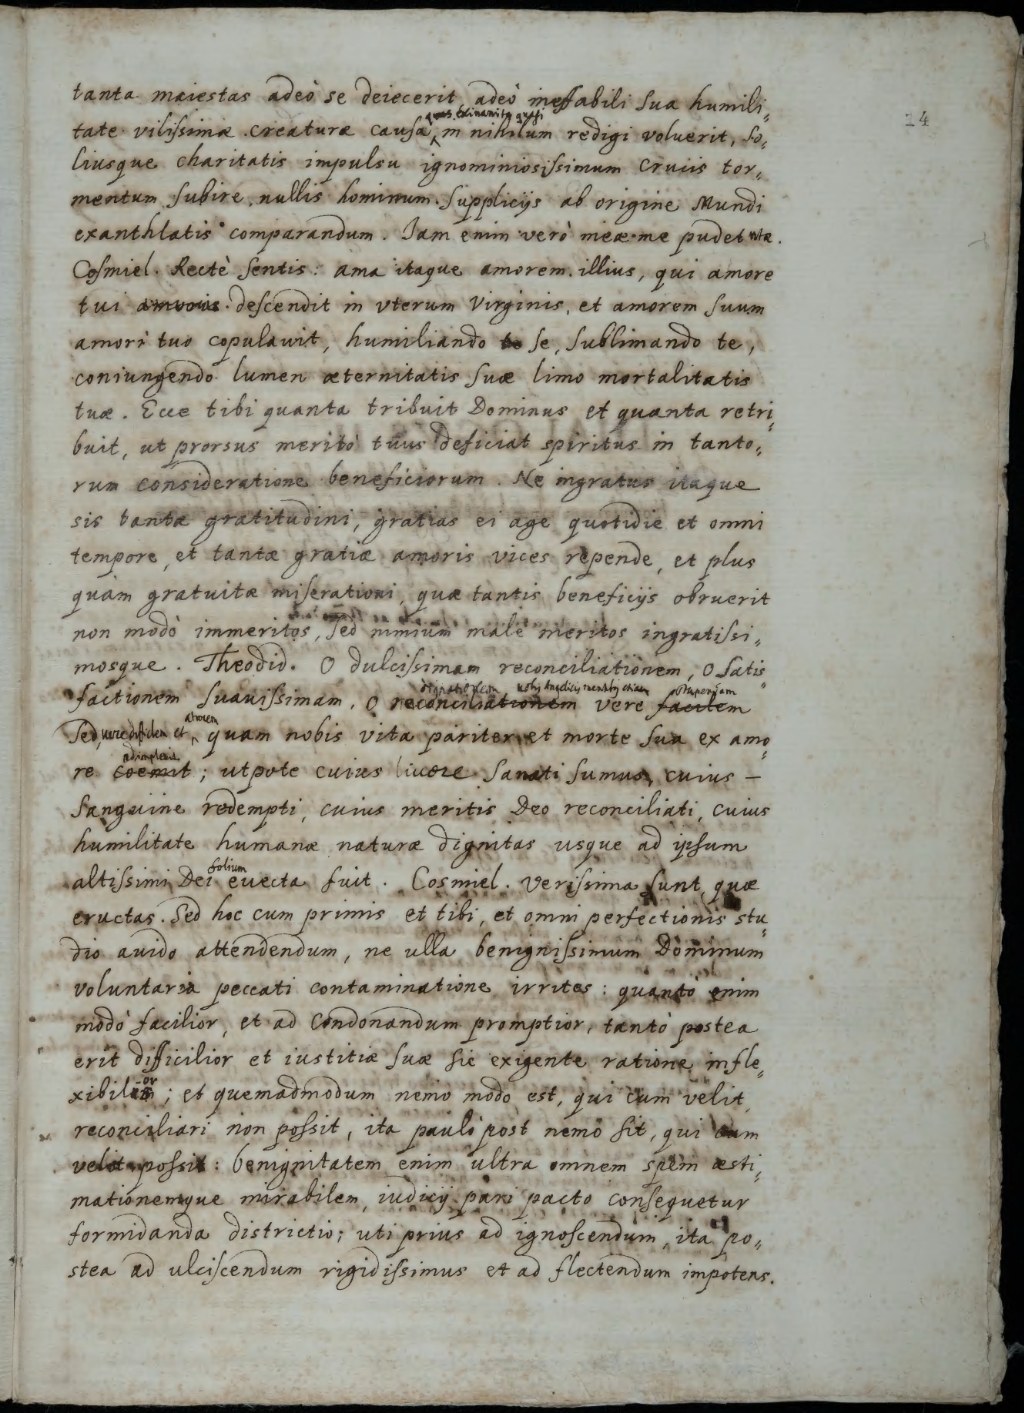 14
tanta maiestas adeò se deiecerit, adeò ineffabili sua humili,
tate vilissimæ creaturæ causa, quasi exinanitus in nihilum redigi voluerit, so,
liusque charitatis impulsu ignominiosissimum crucis tor,
mentum subire, nullis hominum supplicijs ab origine Mundi
exanthlatis comparandum. Iam enim verò meæ me pudet vitæ.
Cosmiel. Rectè sentis: ama itaque amorem illius, qui amore
tui descendit in vterum Virginis, et amorem suum
amori tuo copulavit, humiliando se, sublimando te,
coniungendo lumen æternitatis suæ limo mortalitatis
tuæ. Ecce tibi quanta tribuit Dominus et quanta retri,
buit, ut prorsus meritò tuus deficiat spiritus in tanto,
rum consideratione beneficiorum. Ne ingratus itaque
sis tantæ gratitudini, gratias ei age quotidie et omni
tempore, et tantæ gratiæ amoris vices repende, et plus
quam gratuitæ miserationi, quæ tantis beneficijs obruerit
non modò immeritos, sed nimium malè meritos ingratissi,
mosque. Theodid. O dulcissimam reconciliationem, O satis,
factionem suavissimam, O reconciliationem dignationem vere facilem
sed, et quam nobis vita pariter et morte sua ex amo,
re coemit adimplevit; utpote cuius livore sanati sumus, cuius –
sanguine redempti, cuius meritis Deo reconciliati, cuius
humilitate humanæ naturæ dignitas usque ad ipsum
altissimi Dei solium evecta fuit. Cosmiel. Verissima sunt, quæ
eructas. Sed hoc cum primis et tibi, et omni perfectionis stu,
dio avido attendendum, ne ulla benignissimum Dominum
voluntaria peccati contaminatione irrites: quantò enim
modò facilior, et ad condonandum promptior, tantò postea
erit difficilior et iustitiæ suæ sic exigente ratione infle,
xibilior; et quemadmodum nemo modo est, qui cum velit
reconciliari non possit, ita paulò post nemo sit, qui cum
velit possit: benignitatem enim ultra omnem spem æsti,
mationemque mirabilem, iudicij pari pacto consequetur
formidanda districtio; uti prius ad ignoscendum, ita po,
stea ad ulciscendum rigidissimus et ad flectendum impotens.